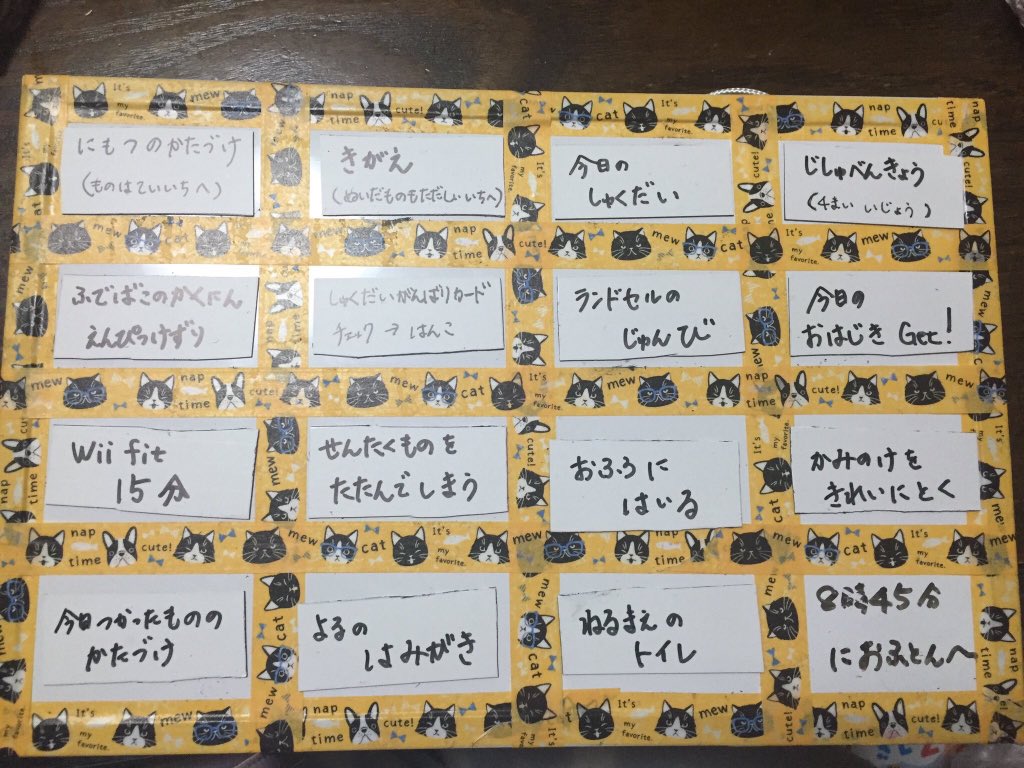 にもつのかたづけ
(ものはていいちへ)
きがえ
(ぬいだものもただしいいちへ)
今日の
しゅくだい
じしゅべんきょう
(4まい いじょう)
ふでばこのかくにん
えんぴつけずり
しゅくだいがんばりカード
チェック→はんこ
ランドセルの
じゅんび
今日の
おはじき Get!
Wii fit
15分
せんたくものを
たたんでしまう
おふろに
はいる
かみのけを
きれいにとく
今日つかったものの
かたづけ
よるの
はみがき
ねるまえの
トイレ
8時45分
におふとんへ
It's
my
favorite.
mew
nap
time
cute!
cat